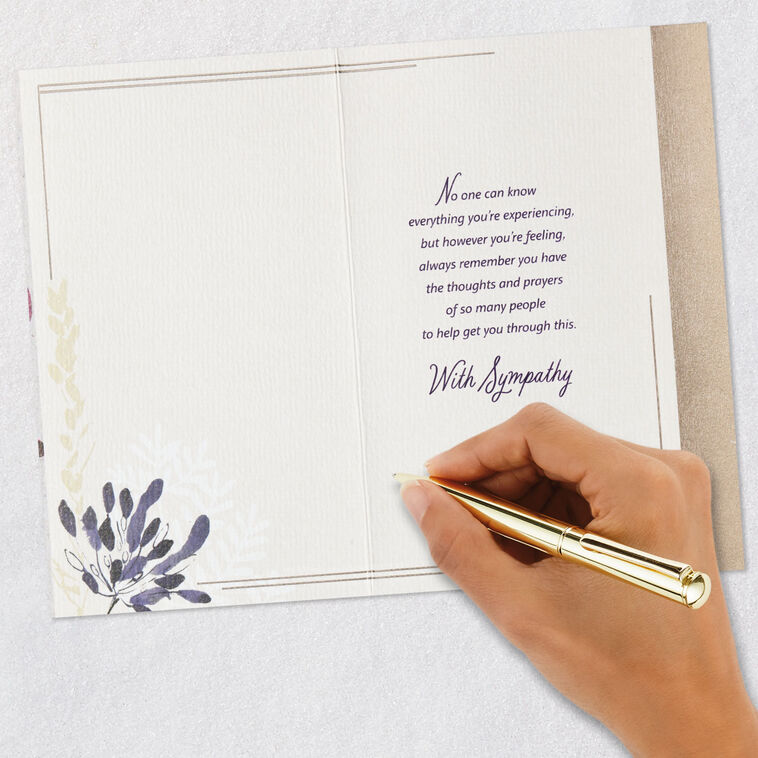 No one can know
everything you're experiencing,
but however you're feeling,
always remember you have
the thoughts and prayers
of so many people
to help get you through this.
With Sympathy